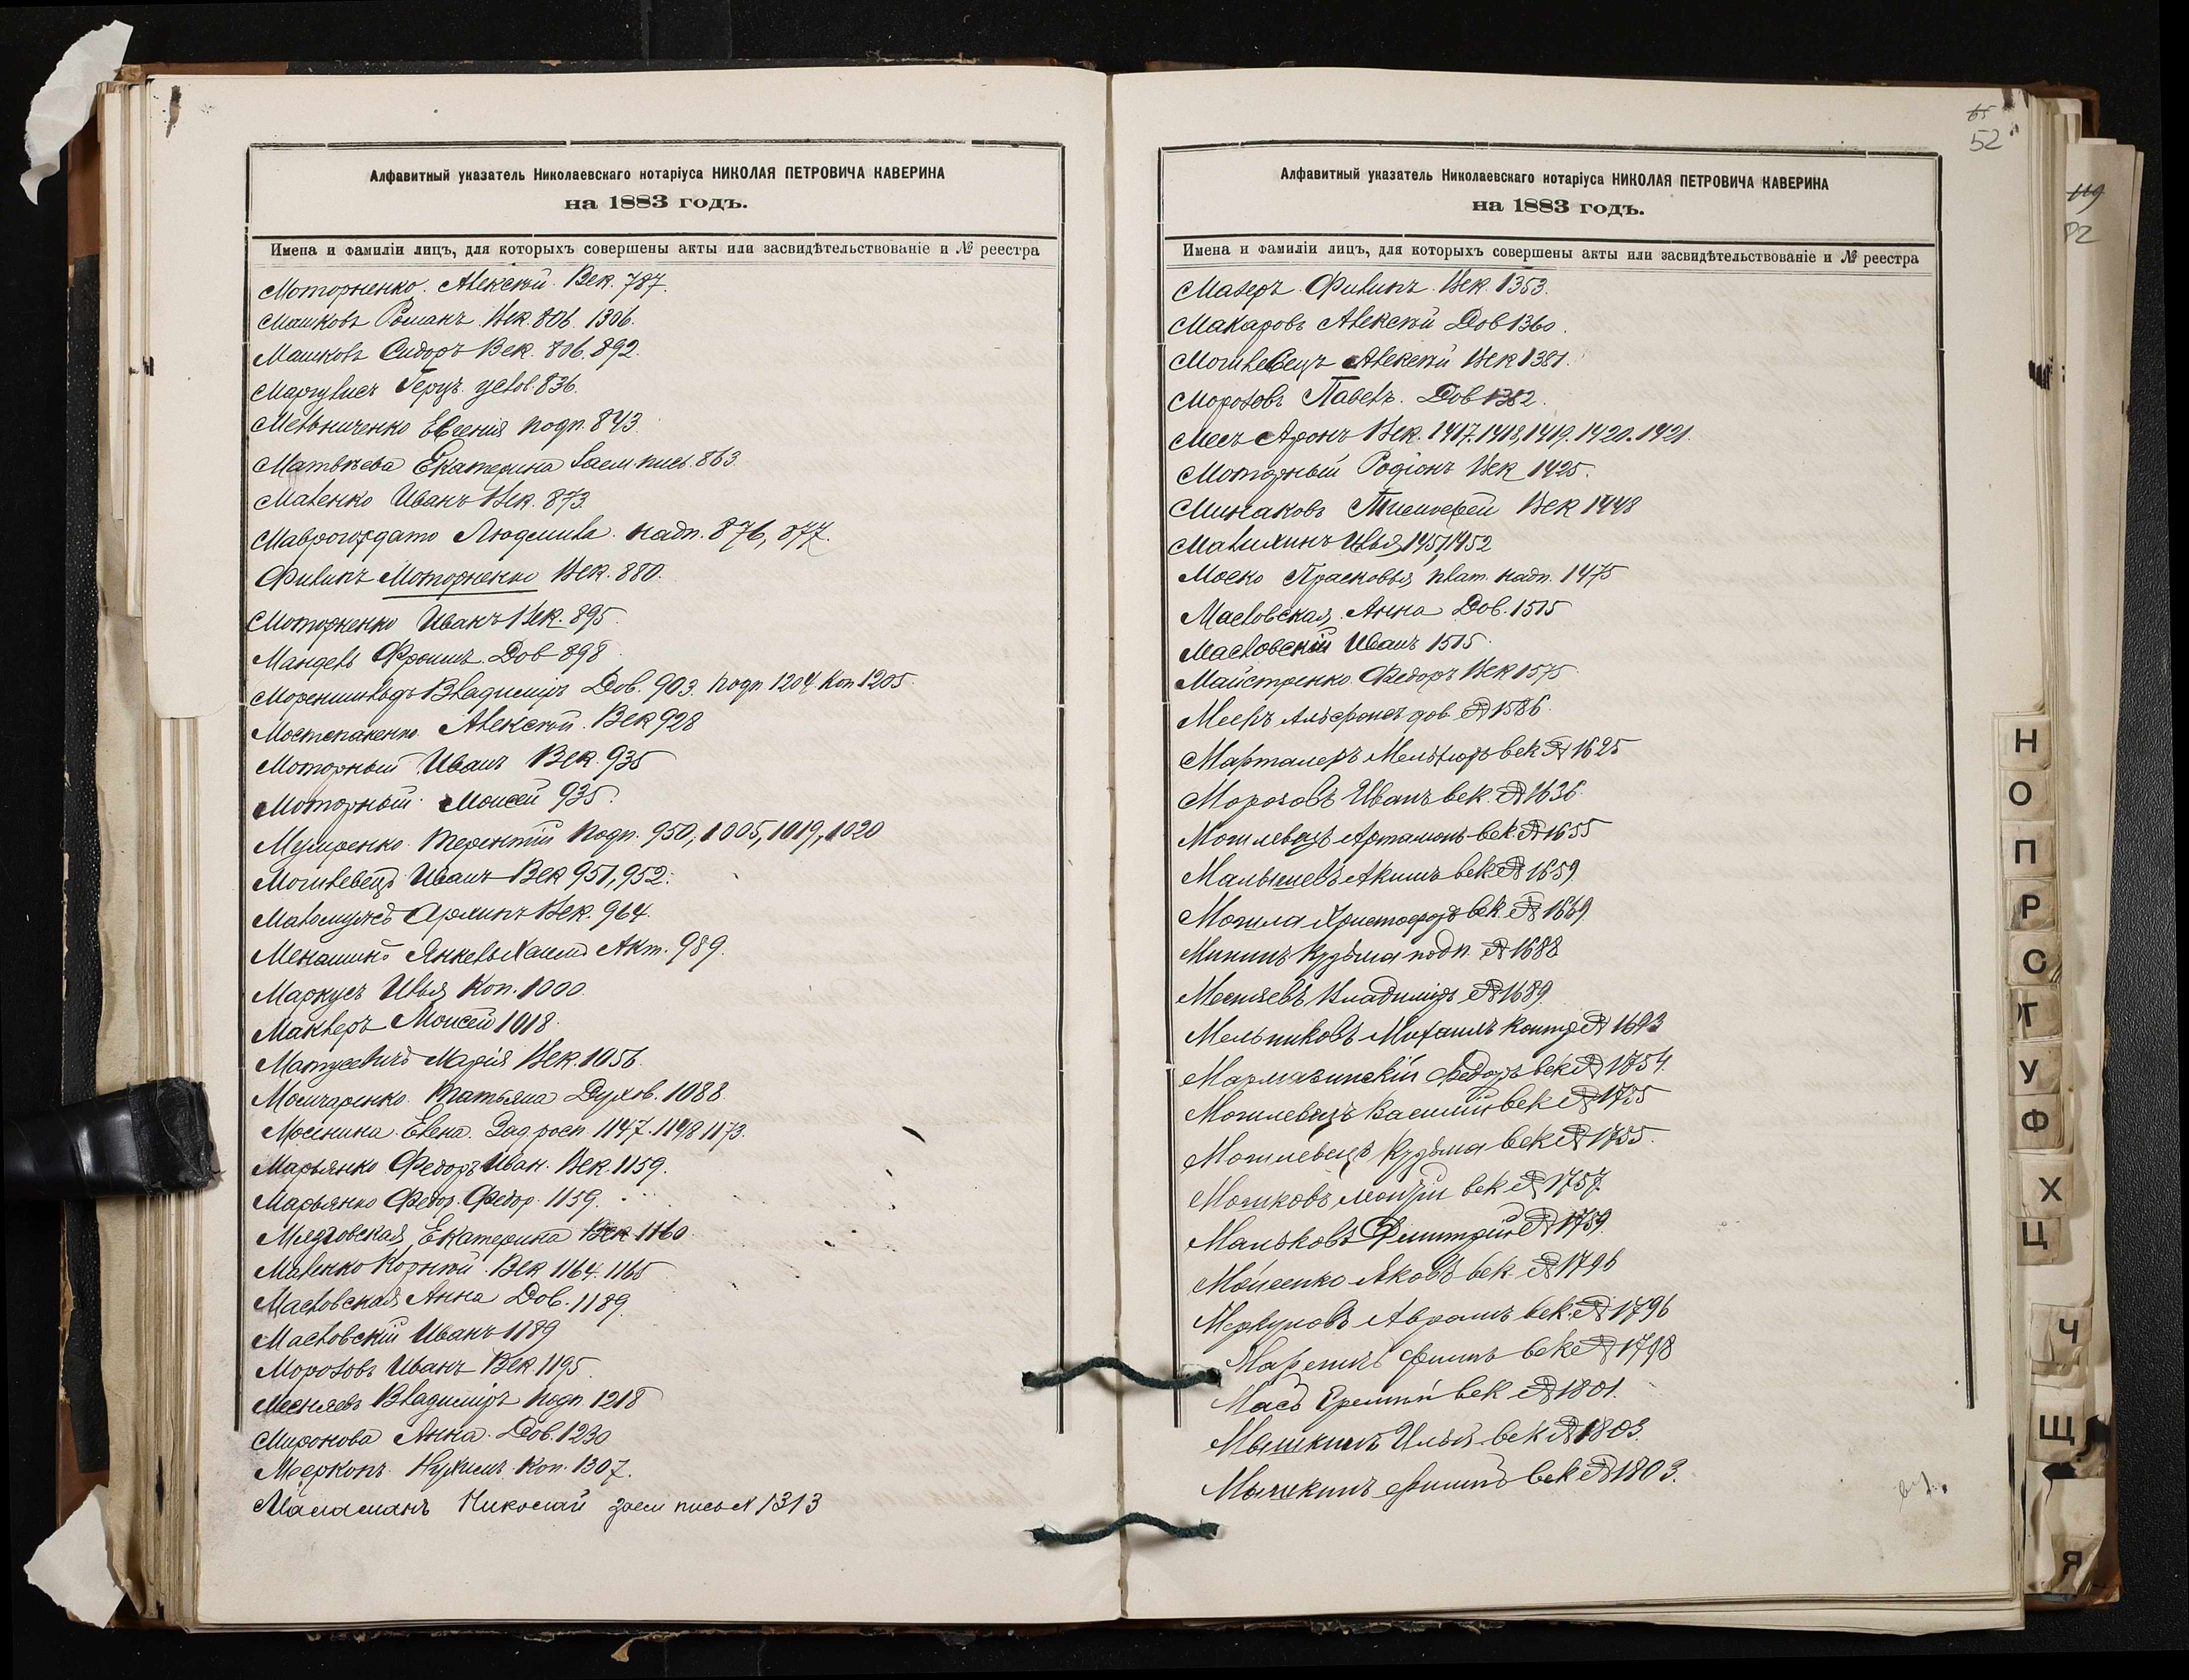 Алфавитный указатель Николаевскаго нотаріуса НИКОЛАЯ ПЕТРОВИЧА КАВЕРИНА
на 1883 годъ.
Имена и фамиліи лицъ, для которыхъ совершены акты или засвидѣтельствованіе и № реестра
Моторненко. Алексѣй. Век. 787.
Машковъ Романъ. Век. 806. 1306.
Машковъ Сидоръ Век. 806. 892.
Маргулисъ Герцъ услов. 836.
Мельниченко Евгенія подп. 843
Матвѣева Екатерина Заем. пись. 863
Маленко Иванъ Век. 873.
Маврогордато Людмила. надп. 876, 877.
Филипъ Моторненко Век. 880.
Моторненко Иванъ Век. 895.
Мандель Фроимъ. Дов 898
Мореншильдъ Владиміръ Дов. 903. подп 1204 Коп 1205.
Мостепаненко. Алексѣй. Век 928
Моторный Иванъ Век. 935
Моторный. Моисей 935.
Терентій подп. 950, 1005, 1019, 1020
Могилевецъ Иванъ Век 951, 952.
Маломужъ Архипъ Век. 964.
Менашинъ Янкель Хаимъ Акт. 989.
Маркусъ Илья Коп. 1000
Маклеръ Моисей 1018.
Матусевичъ Марія Век. 1056.
Татьяна Духов. 1088
Мосенина. Елена. Зад. росп 1147. 1148 1173.
Марьянко Федоръ Иван. Век. 1159.
Марьянко Федор. Федор. 1159.
Екатерина Век 1160
Маленко Корнѣй. Век 1164. 1165
Масловская Анна Дов. 1189
Масловскій Иванъ 1189
Морозовъ Иванъ Век. 1195.
Месняевъ Владиміръ подп 1218
Миронова Анна. Дов. 1230
Мееркопъ. Нухимъ. Коп. 1307.
Маламанъ Николай заем письм 1313
65
52
Алфавитный указатель Николаевскаго нотаріуса НИКОЛАЯ ПЕТРОВИЧА КАВЕРИНА
на 1883 годъ.
Имена и фамиліи лицъ, для которыхъ совершены акты или засвидѣтельствованіе и № реестра
Мазеръ. Филипъ. Век. 1353.
Макаровъ Алексѣй Дов 1360.
Могилевецъ Алексѣй Век 1381.
Морозовъ Павелъ. Дов 1382.
Месъ Аронъ Век. 1417. 1418, 1419. 1420. 1421.
Моторный Родіонъ Век 1425.
Минаковъ Тимофей Век 1448
Малихинъ Илья, 1451, 1452
Прасковья плат. надп. 1475
Масловская. Анна Дов. 1515
Масловскій Иванъ 1515.
Майстренко. Федоръ Век 1575.
Альфонсъ дов. № 1586.
Марталеръ Мельхіоръ век № 1625
Морозовъ Иванъ век. № 1636.
Могилевецъ Артамонъ век. № 1655
Малышевъ Акимъ век № 1659
Могила Христофоръ век. № 1669.
Мининъ Кузьма подп. № 1688
Месняевъ Владиміръ № 1689.
Мельниковъ Михаилъ контр № 1693
Федоръ век № 1754.
Могилевецъ Василій век № 1755
Могилевецъ Кузьма век № 1755.
век № 1757.
Маньковъ Дмитрій № 1759.
Моисеенко Яковъ век. № 1796
Меркуловъ Абрамъ век. № 1796
век № 1798
Масъ век № 1801.
Мышкинъ Илья век № 1803.
Мышкинъ век № 1803.
119
82
Н
О
П
Р
С
Т
У
Ф
Х
Ц
Ч
Щ
Я